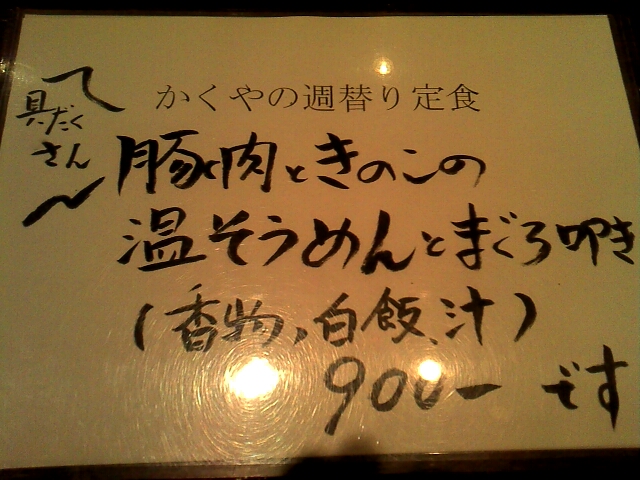 かくやの週替り定食
〜具だくさん〜
豚肉ときのこの
温そうめんとまぐろ叩き
(香物、白飯、汁)
900ー です